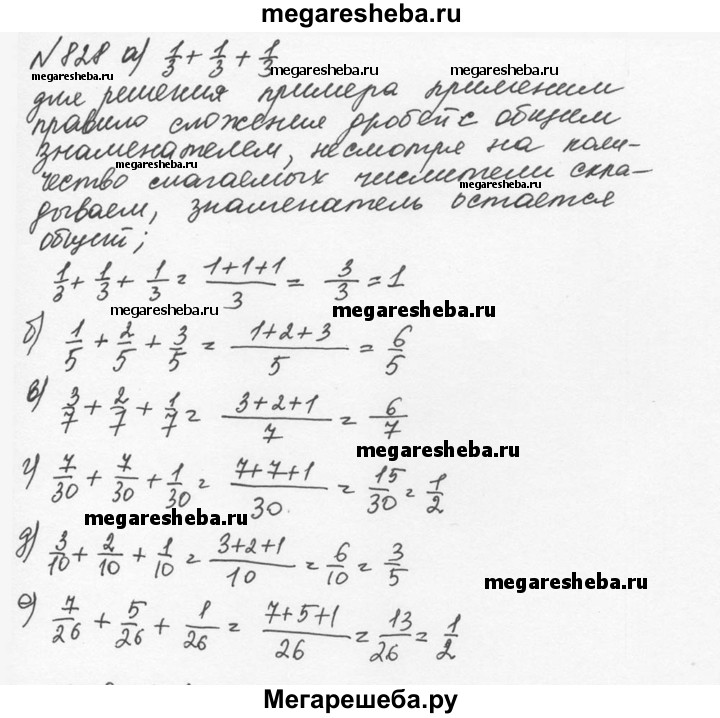 megaresheba.ru
№ 828 а) 1/3 + 1/3 + 1/3
megaresheba.ru megaresheba.ru megaresheba.ru
для решения примера применим
правило сложения дробей с общим
megaresheba.ru
знаменателем, несмотря на коли-
чество слагаемых числители скла-
megaresheba.ru
дываем, знаменатель остается
общий;
1/3 + 1/3 + 1/3 = (1+1+1)/3 = 3/3 = 1
megaresheba.ru megaresheba.ru
б) 1/5 + 2/5 + 3/5 = (1+2+3)/5 = 6/5
в) 3/7 + 2/7 + 1/7 = (3+2+1)/7 = 6/7
megaresheba.ru
г) 7/30 + 7/30 + 1/30 = (7+7+1)/30 = 15/30 = 1/2
megaresheba.ru
д) 3/10 + 2/10 + 1/10 = (3+2+1)/10 = 6/10 = 3/5
megaresheba.ru
е) 7/26 + 5/26 + 1/26 = (7+5+1)/26 = 13/26 = 1/2
Мегарешеба.ру